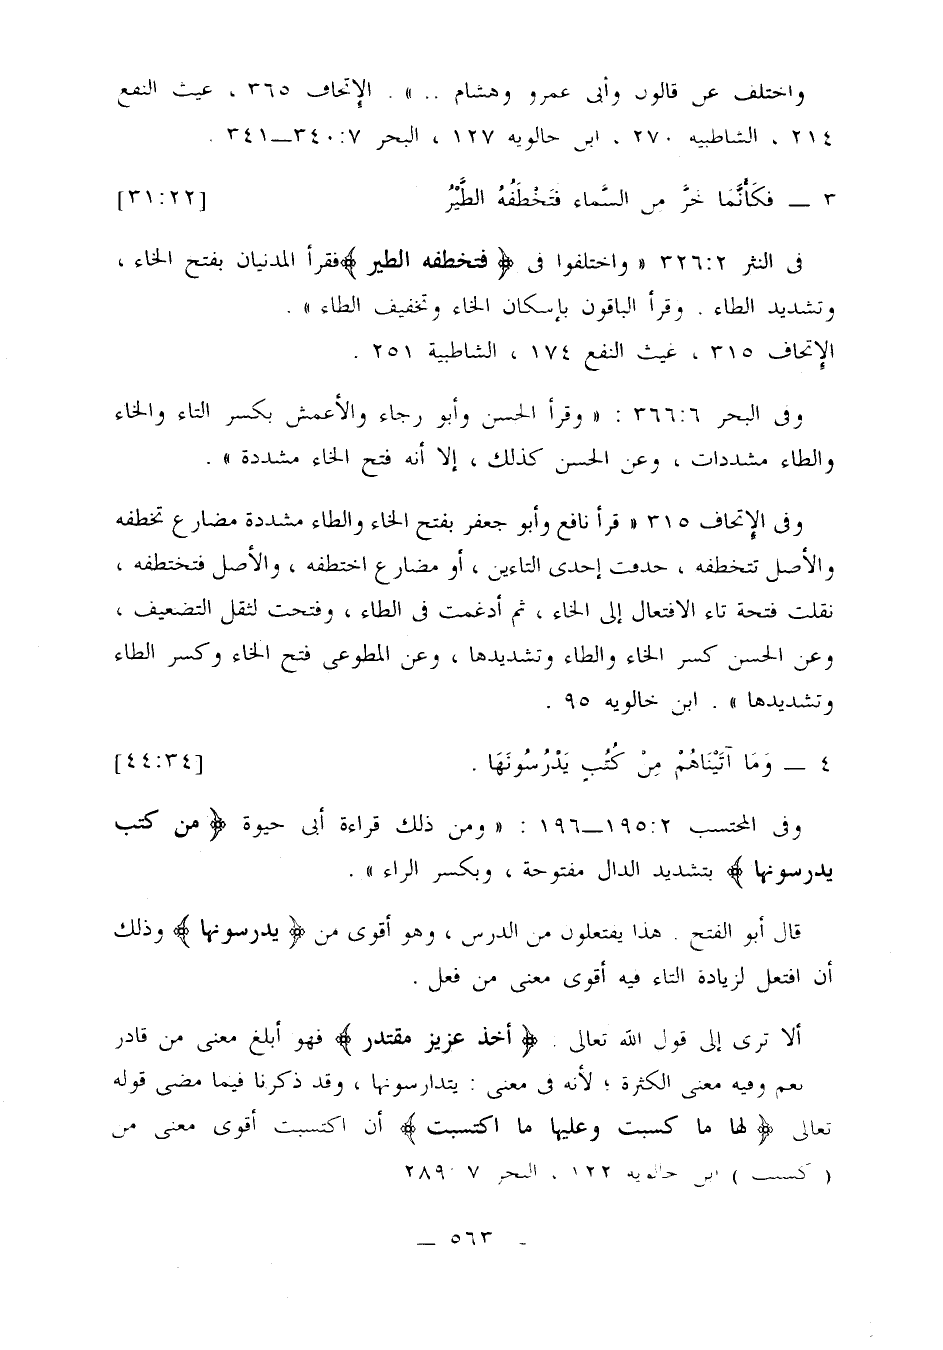 واختلف عن قالون وأبى عمرو وهشام .. » . الإتحاف ٣٦٥ ، غيث النفع
٢١٤ ، الشاطبيه ٢٧٠ ، ابن خالويه ١٢٧ ، البحر ٧:٣٤٠—٣٤١ .
٣ — فَكَأَنَّمَا خَرَّ مِن السَّماء فَتَخْطَفُهُ الطَّيْرُ [٣١:٢٢]
فى النثر ٣٢٦:٢ « واختلفوا فى ﴿ فتخطفه الطير ﴾ فقرأ المدنيان بفتح الخاء ،
وتشديد الطاء . وقرأ الباقون بإسكان الخاء وتخفيف الطاء » .
الإتحاف ٣١٥ ، غيث النفع ١٧٤ ، الشاطبية ٢٥١ .
وفى البحر ٣٦٦:٦ : « وقرأ الحسن وأبو رجاء والأعمش بكسر التاء والخاء
والطاء مشددات ، وعن الحسن كذلك ، إلا أنه فتح الخاء مشددة » .
وفى الإتحاف ٣١٥ « قرأ نافع وأبو جعفر بفتح الخاء والطاء مشددة مضارع تخطفه
والأصل تتخطفه ، حذفت إحدى التاءين ، أو مضارع اختطفه ، والأصل فتختطفه ،
نقلت فتحة تاء الافتعال إلى الخاء ، ثم أدغمت فى الطاء ، وفتحت لثقل التضعيف ،
وعن الحسن كسر الخاء والطاء وتشديدها ، وعن المطوعى فتح الخاء وكسر الطاء
وتشديدها » . ابن خالويه ٩٥ .
٤ — وَمَا آتَيْنَاهُمْ مِنْ كُتُبٍ يَدْرُسُونَهَا . [٤٤:٣٤]
وفى المحتسب ١٩٥:٢—١٩٦ : « ومن ذلك قراءة أبى حيوة ﴿ من كتب
يدرسونها ﴾ بتشديد الدال مفتوحة ، وبكسر الراء » .
قال أبو الفتح . هذا يفتعلون من الدرس ، وهو أقوى من ﴿ يدرسونها ﴾ وذلك
أن افتعل لزيادة التاء فيه أقوى معنى من فعل .
ألا ترى إلى قول الله تعالى . ﴿ أخذ عزيز مقتدر ﴾ فهو أبلغ معنى من قادر
نعم وفيه معنى الكثرة ؛ لأنه فى معنى : يتدارسونها ، وقد ذكرنا فيما مضى قوله
تعالى ﴿ لها ما كسبت وعليها ما اكتسبت ﴾ أن اكتسبت أقوى معنى من
( كسبت ) ابن خالويه ١٢٢ ، البحر ٧ ٢٨٩
- ٥٦٣ —